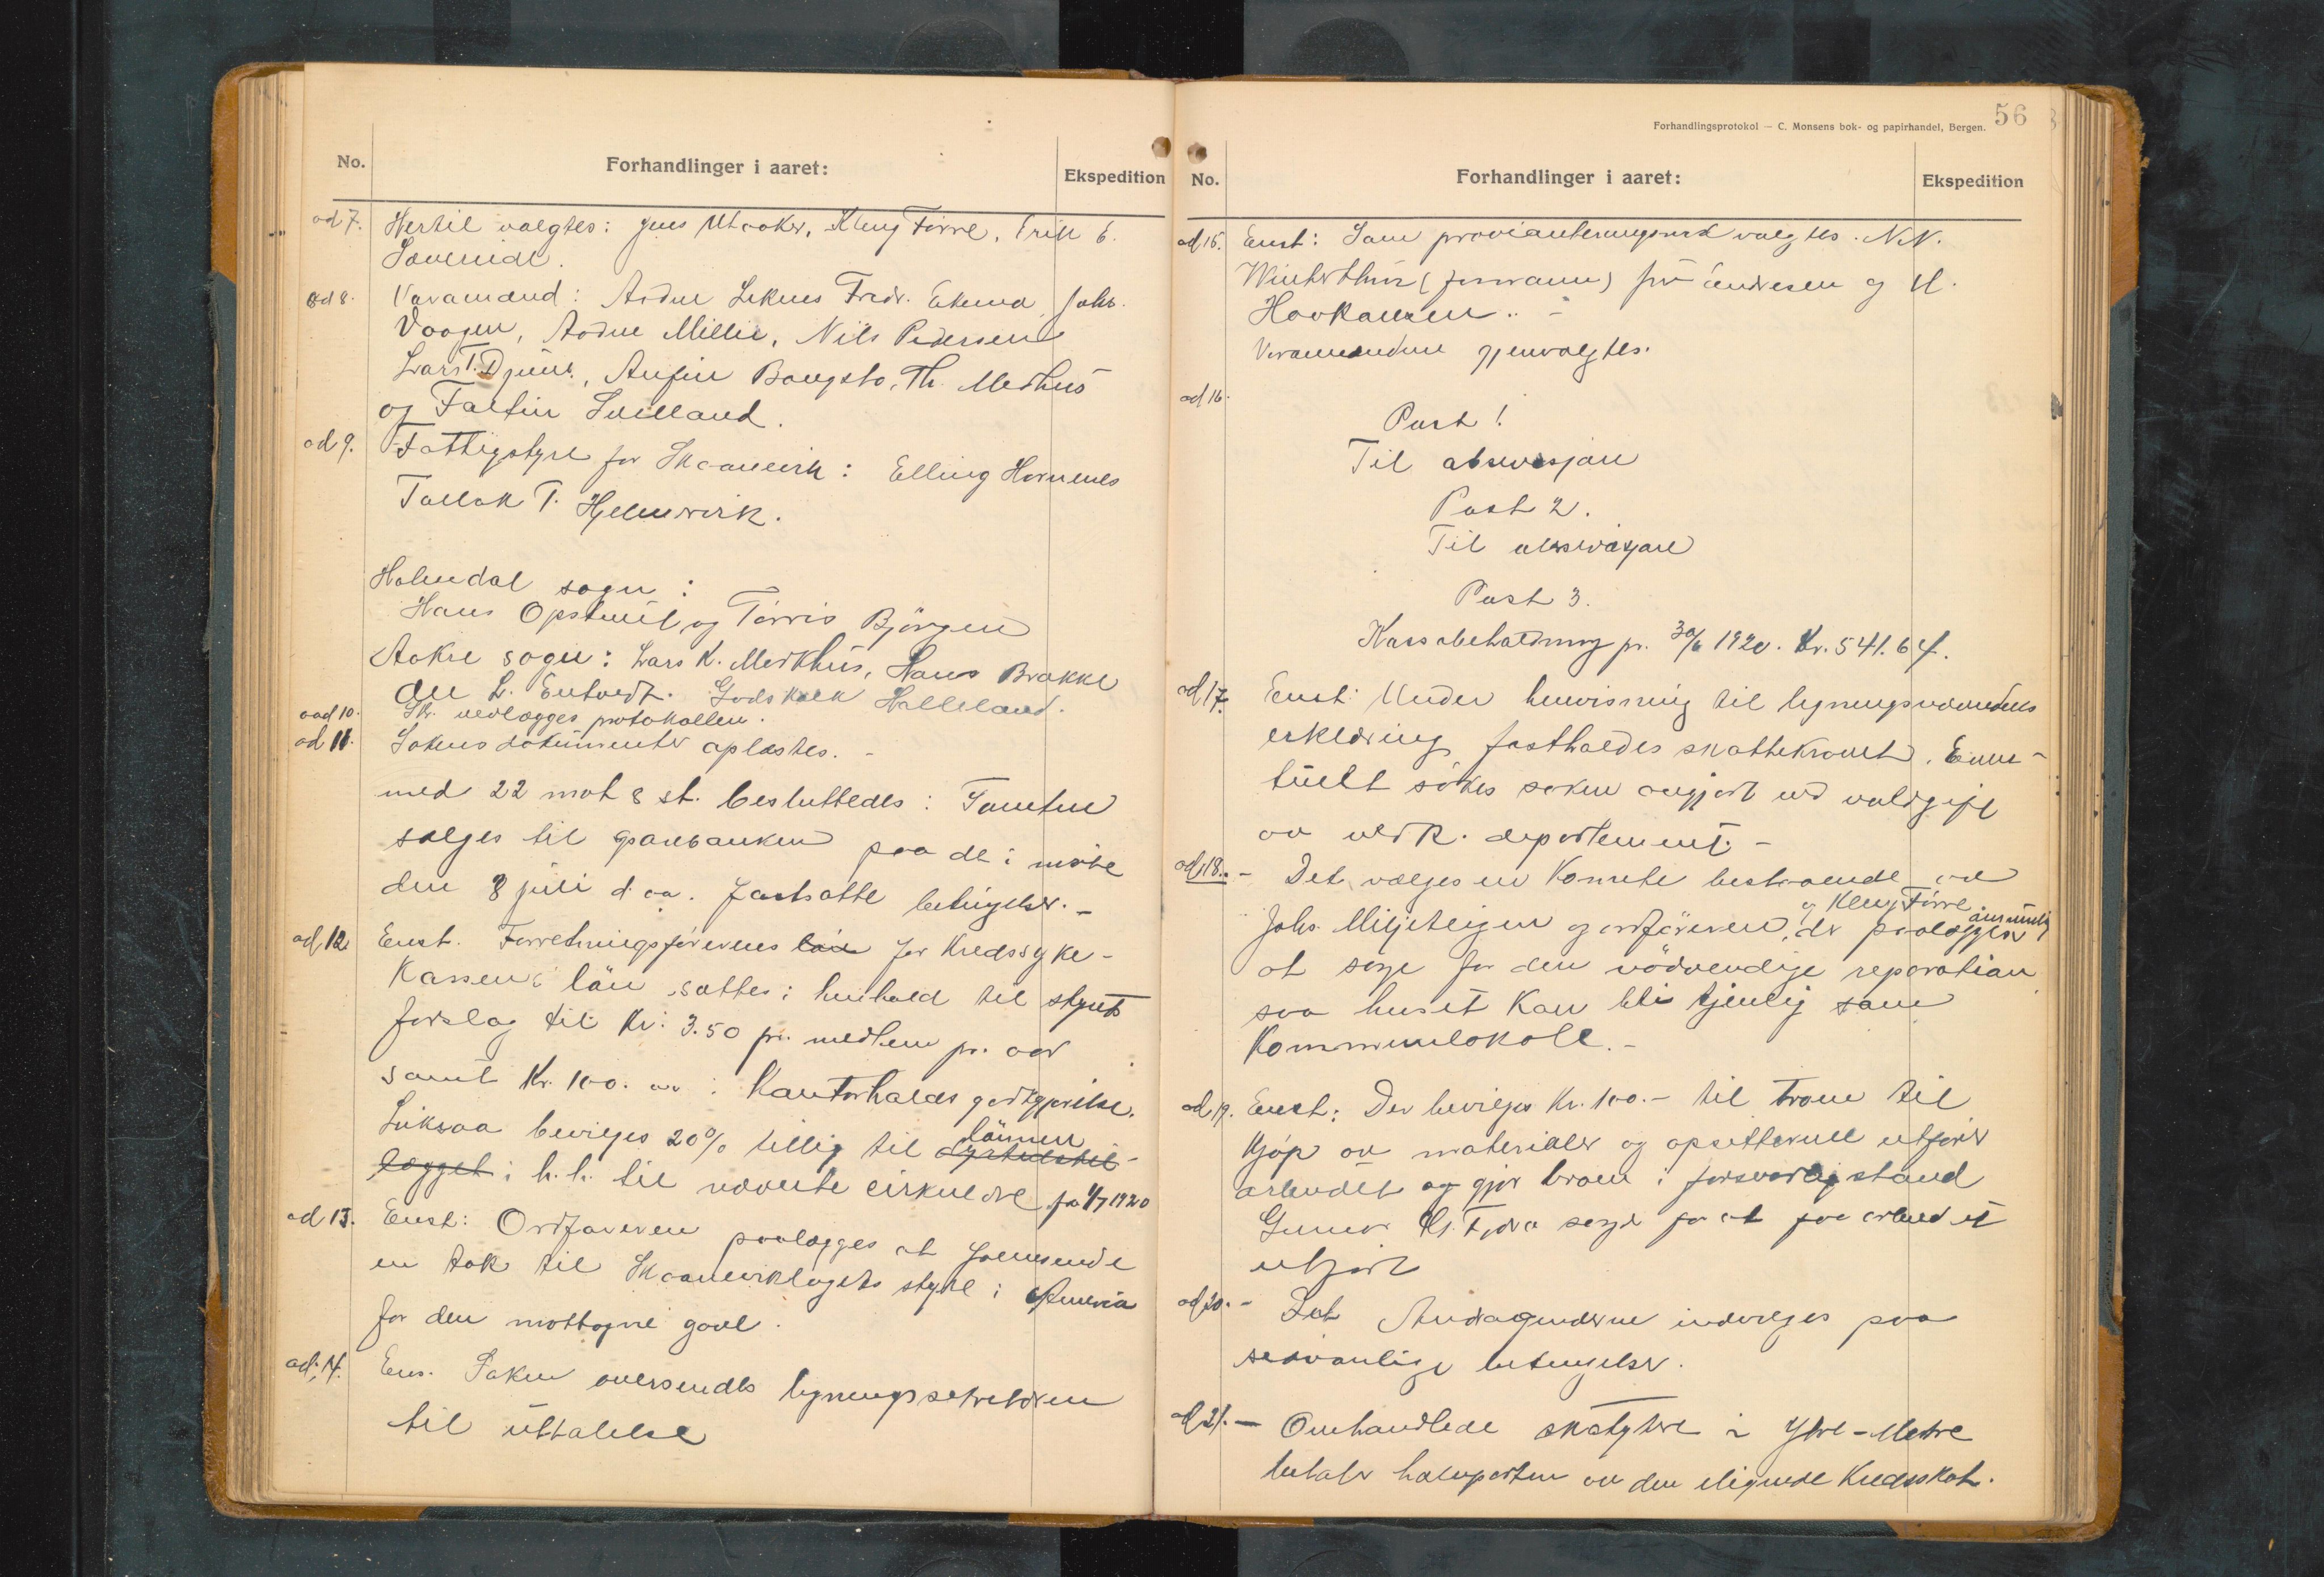 No.
Forhandlinger i aaret:
Ekspedition
ad 7. Hertil valgtes: Jens Utaaker, Kleng Förre, Erik E.
Saueride.
ad 8. Varamænd: Aadne Leknes Fredr. Eikemo Johs.
Vaagen, Aadne Millie, Nils Pedersen
Lars T. Djuve, Anfin Bangsto, Th. Medhus
og Faltin Svelland.
ad 9. Fattigstyre for Skaanevik: Elling Hornenes
Tallak T. Hjelmvik.
Holmedal sogn:
Hans Opstveit og Torris Björgen
Aakre sogn: Lars K. Merkhus, Hans Brakke
Ole L. Entvedt. Godskalk Helleland.
aad 10. Sk. vedlægges protokollen.
ad 11. Sakens dokumenter oplæstes. -
med 22 mot 8 st. besluttedes: Tomten
sælges til sparebanken paa de i møte
den 8 juli d. aa. fastsatte betingelser. -
ad 12. Enst. Forretningsförerens lön for Kredssyke-
kassen's lön sattes i henhold til styrets
forslag til Kr. 3.50 pr. medlem pr. aar
samt Kr. 100. i Kontorholds godtgjørelse.
Likesaa bevilges 20% tillæg til dyrtidstil- lønnen
lægget i h. h. til nævnte cirkulære fra 1/7 1920
ad 13. Enst: Ordføreren paalægges at fremsende
en tak til Skaaneviklagets styre i Amerika
for den mottagne gave.
ad. 14. Ens. Saken oversendes ligningssekretæren
til uttalelse
Forhandlingsprotokol — C. Monsens bok- og papirhandel, Bergen.
56
No.
Forhandlinger i aaret:
Ekspedition
ad 15. Enst: Som provianteringsraad valgtes. N.N.
Winterthun (formann) fru Endresen og H.
Haakonsen. -
Varamændene gjenvalgtes.
ad 16.
Post 1
Til observasjon
Post 2.
Til observasjon
Post 3.
Kassabeholdning pr. 30/6 1920. Kr. 541.64.
ad 17. Enst: Under henvisning til ligningsnævndens
erklæring fastholdes skattekravet. Even-
tuelt sökes saken avgjort ved voldgift
av vedk. departement. -
ad 18. - Det vælges en Komite bestaaende av
og Kleng Förre
Johs. Miljeteigen og ordföreren, der paalægges
at sörge for den nödvendige reparation
saa huset kan bli tjenlig som
Kommunelokale. -
ad 19. Enst: Der bevilges Kr. 100.- til broen til
kjöp av materialer og opsitterne utförer
arbeidet og gjör broen i forsvarlig stand
Gunnar Kr. Fjæra sörger for at faa arbeidet
utfört
ad 20. - Lat Andragenderne indvilges paa
sedvanlige betingelser.
ad 21. - Omhandlede skatytere i Ytre-Matre
betaler halvparten av den utlignede Kredsskat.